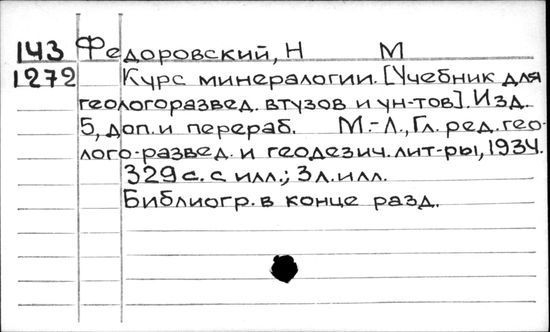 143 Федоровский, Н М
1272 Курс минералогии. [Учебник для
геологоразвед. втузов и ун-тов]. Изд.
5, доп. и перераб. М.-Л., Гл. ред. гео-
лого-развед. и геодезич. лит-ры, 1934.
329 с. с илл.; 3 л. илл.
Библиогр. в конце разд.